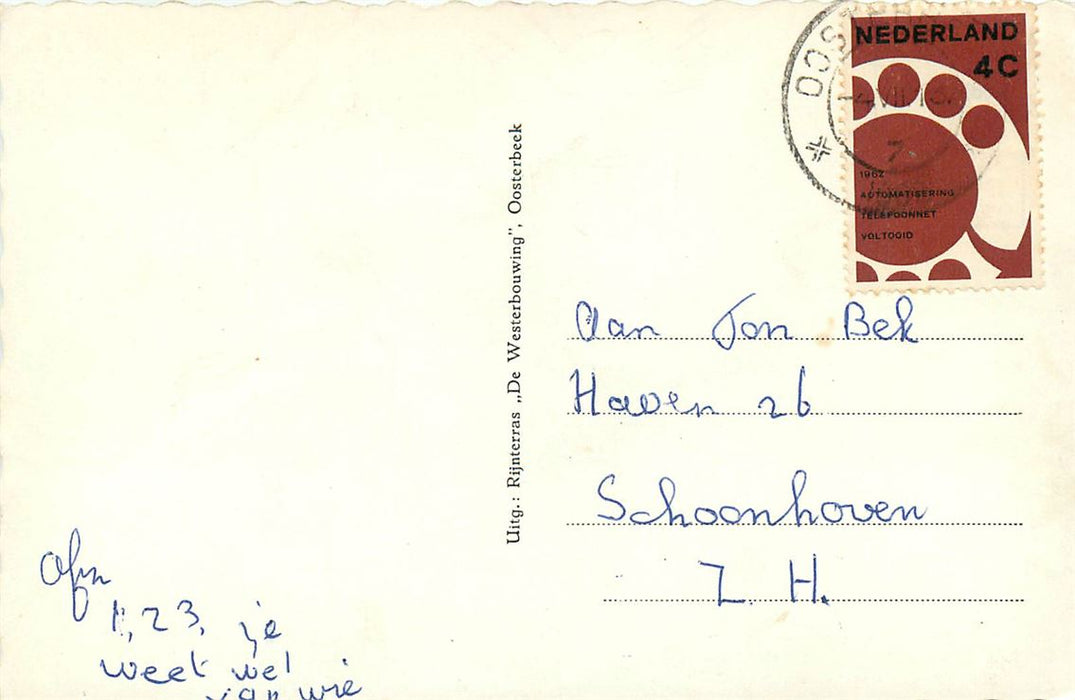 NEDERLAND
4C
1962
AUTOMATISERING
TELEFOONNET
VOLTOOID
Uitg.: Rijnterras „De Westerbouwing”, Oosterbeek
Aan Ton Bek
Haven 26
Schoonhoven
Z. H.
Afz
1, 2 3, je
weet wel
van wie